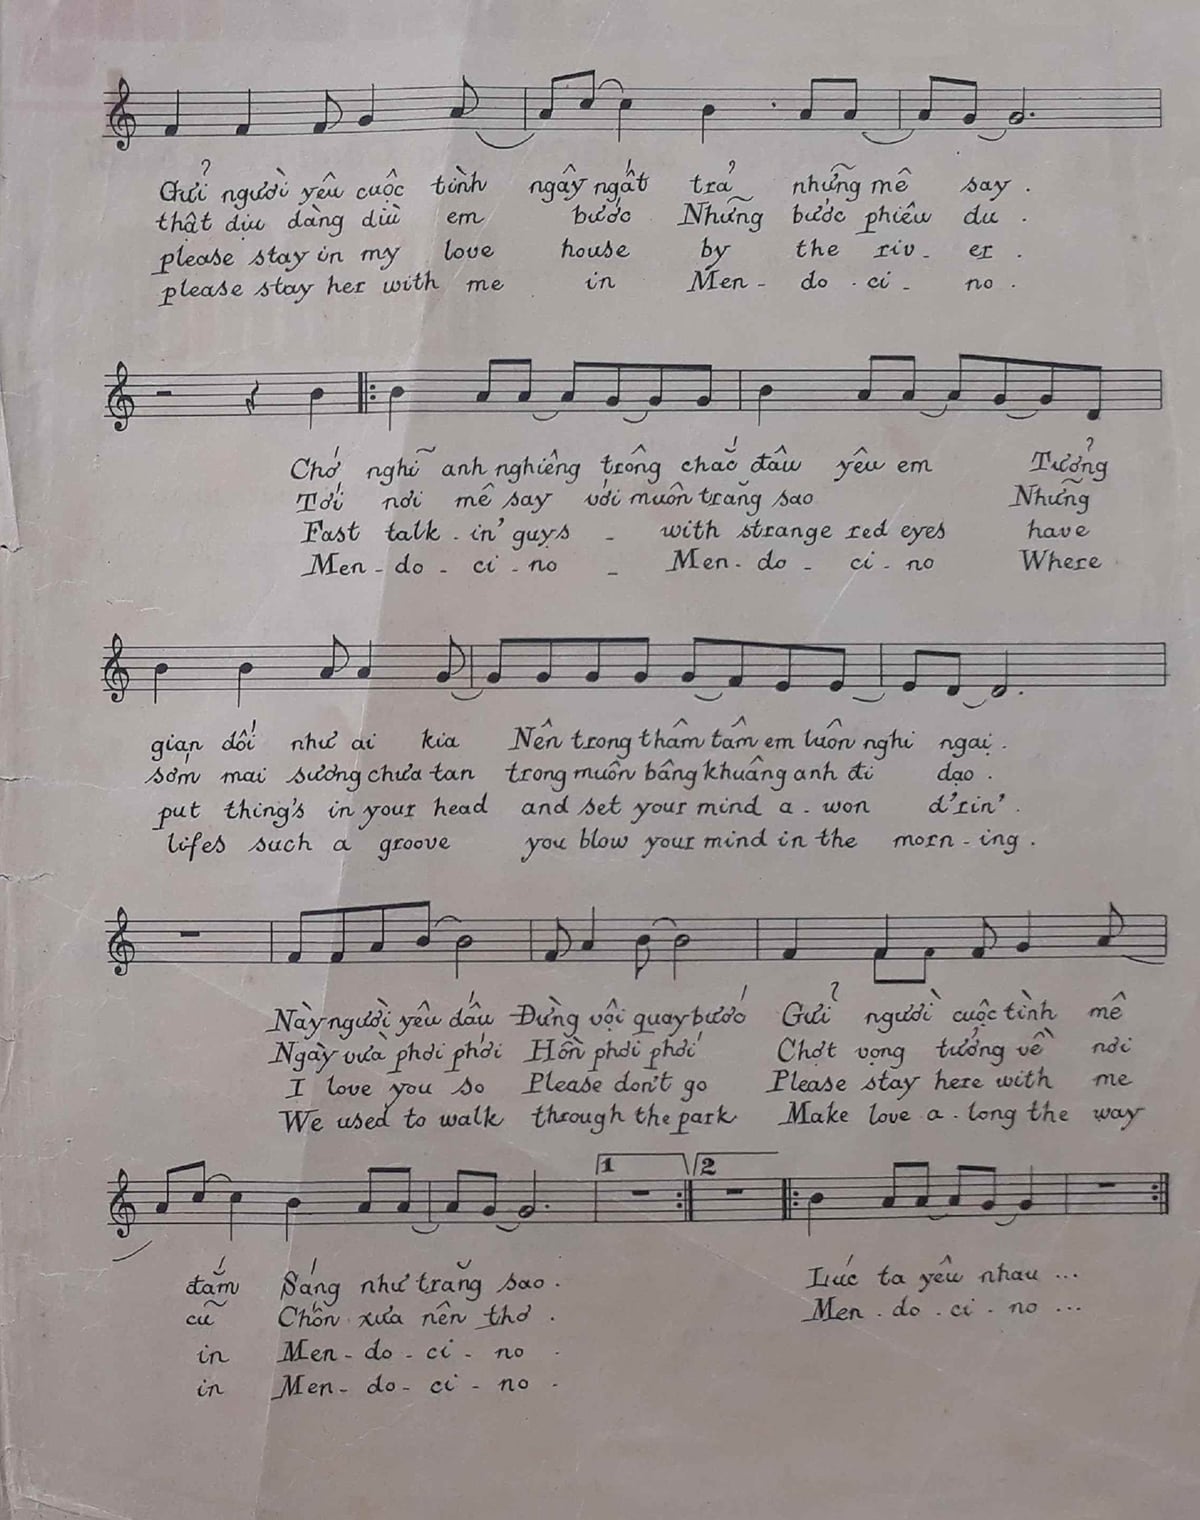 Gửi người yêu cuộc tình ngây ngất trả những mê say.
thật dịu dàng dìu em bước Những bước phiêu du.
please stay in my love house by the riv - er.
please stay her with me in Men - do - ci - no.
Chớ nghĩ anh nghiêng trông chắc đâu yêu em Tưởng
Tới nơi mê say với muôn trăng sao Những
Fast talk - in' guys - with strange red eyes have
Men - do - ci - no - Men - do - ci - no Where
gian dối như ai kia Nên trong thâm tâm em luôn nghi ngại.
sớm mai sương chưa tan trong muôn bâng khuâng anh đi dạo.
put thing's in your head and set your mind a - won d'rin'.
lifes such a groove you blow your mind in the morn - ing.
Này người yêu dấu Đừng vội quay bước Gửi người cuộc tình mê
Ngày vừa phơi phới Hồn phơi phới Chợt vọng tưởng về nơi
I love you so Please don't go Please stay here with me
We used to walk through the park Make love a - long the way
1 2
đắm Sáng như trăng sao. Lúc ta yêu nhau ...
cũ Chốn xưa nên thơ. Men - do - ci - no ...
in Men - do - ci - no -
in Men - do - ci - no -